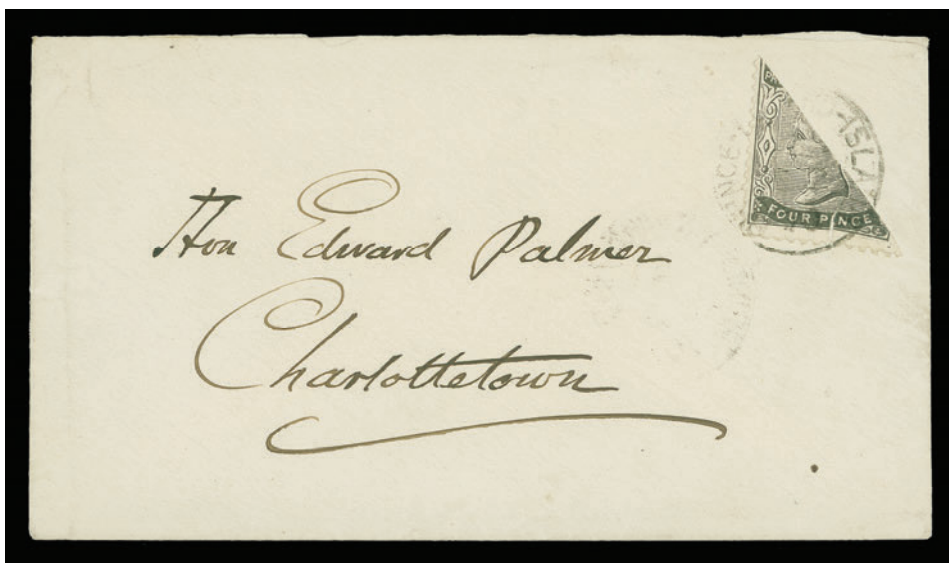 Hon Edward Palmer
Charlottetown
FOUR PENCE